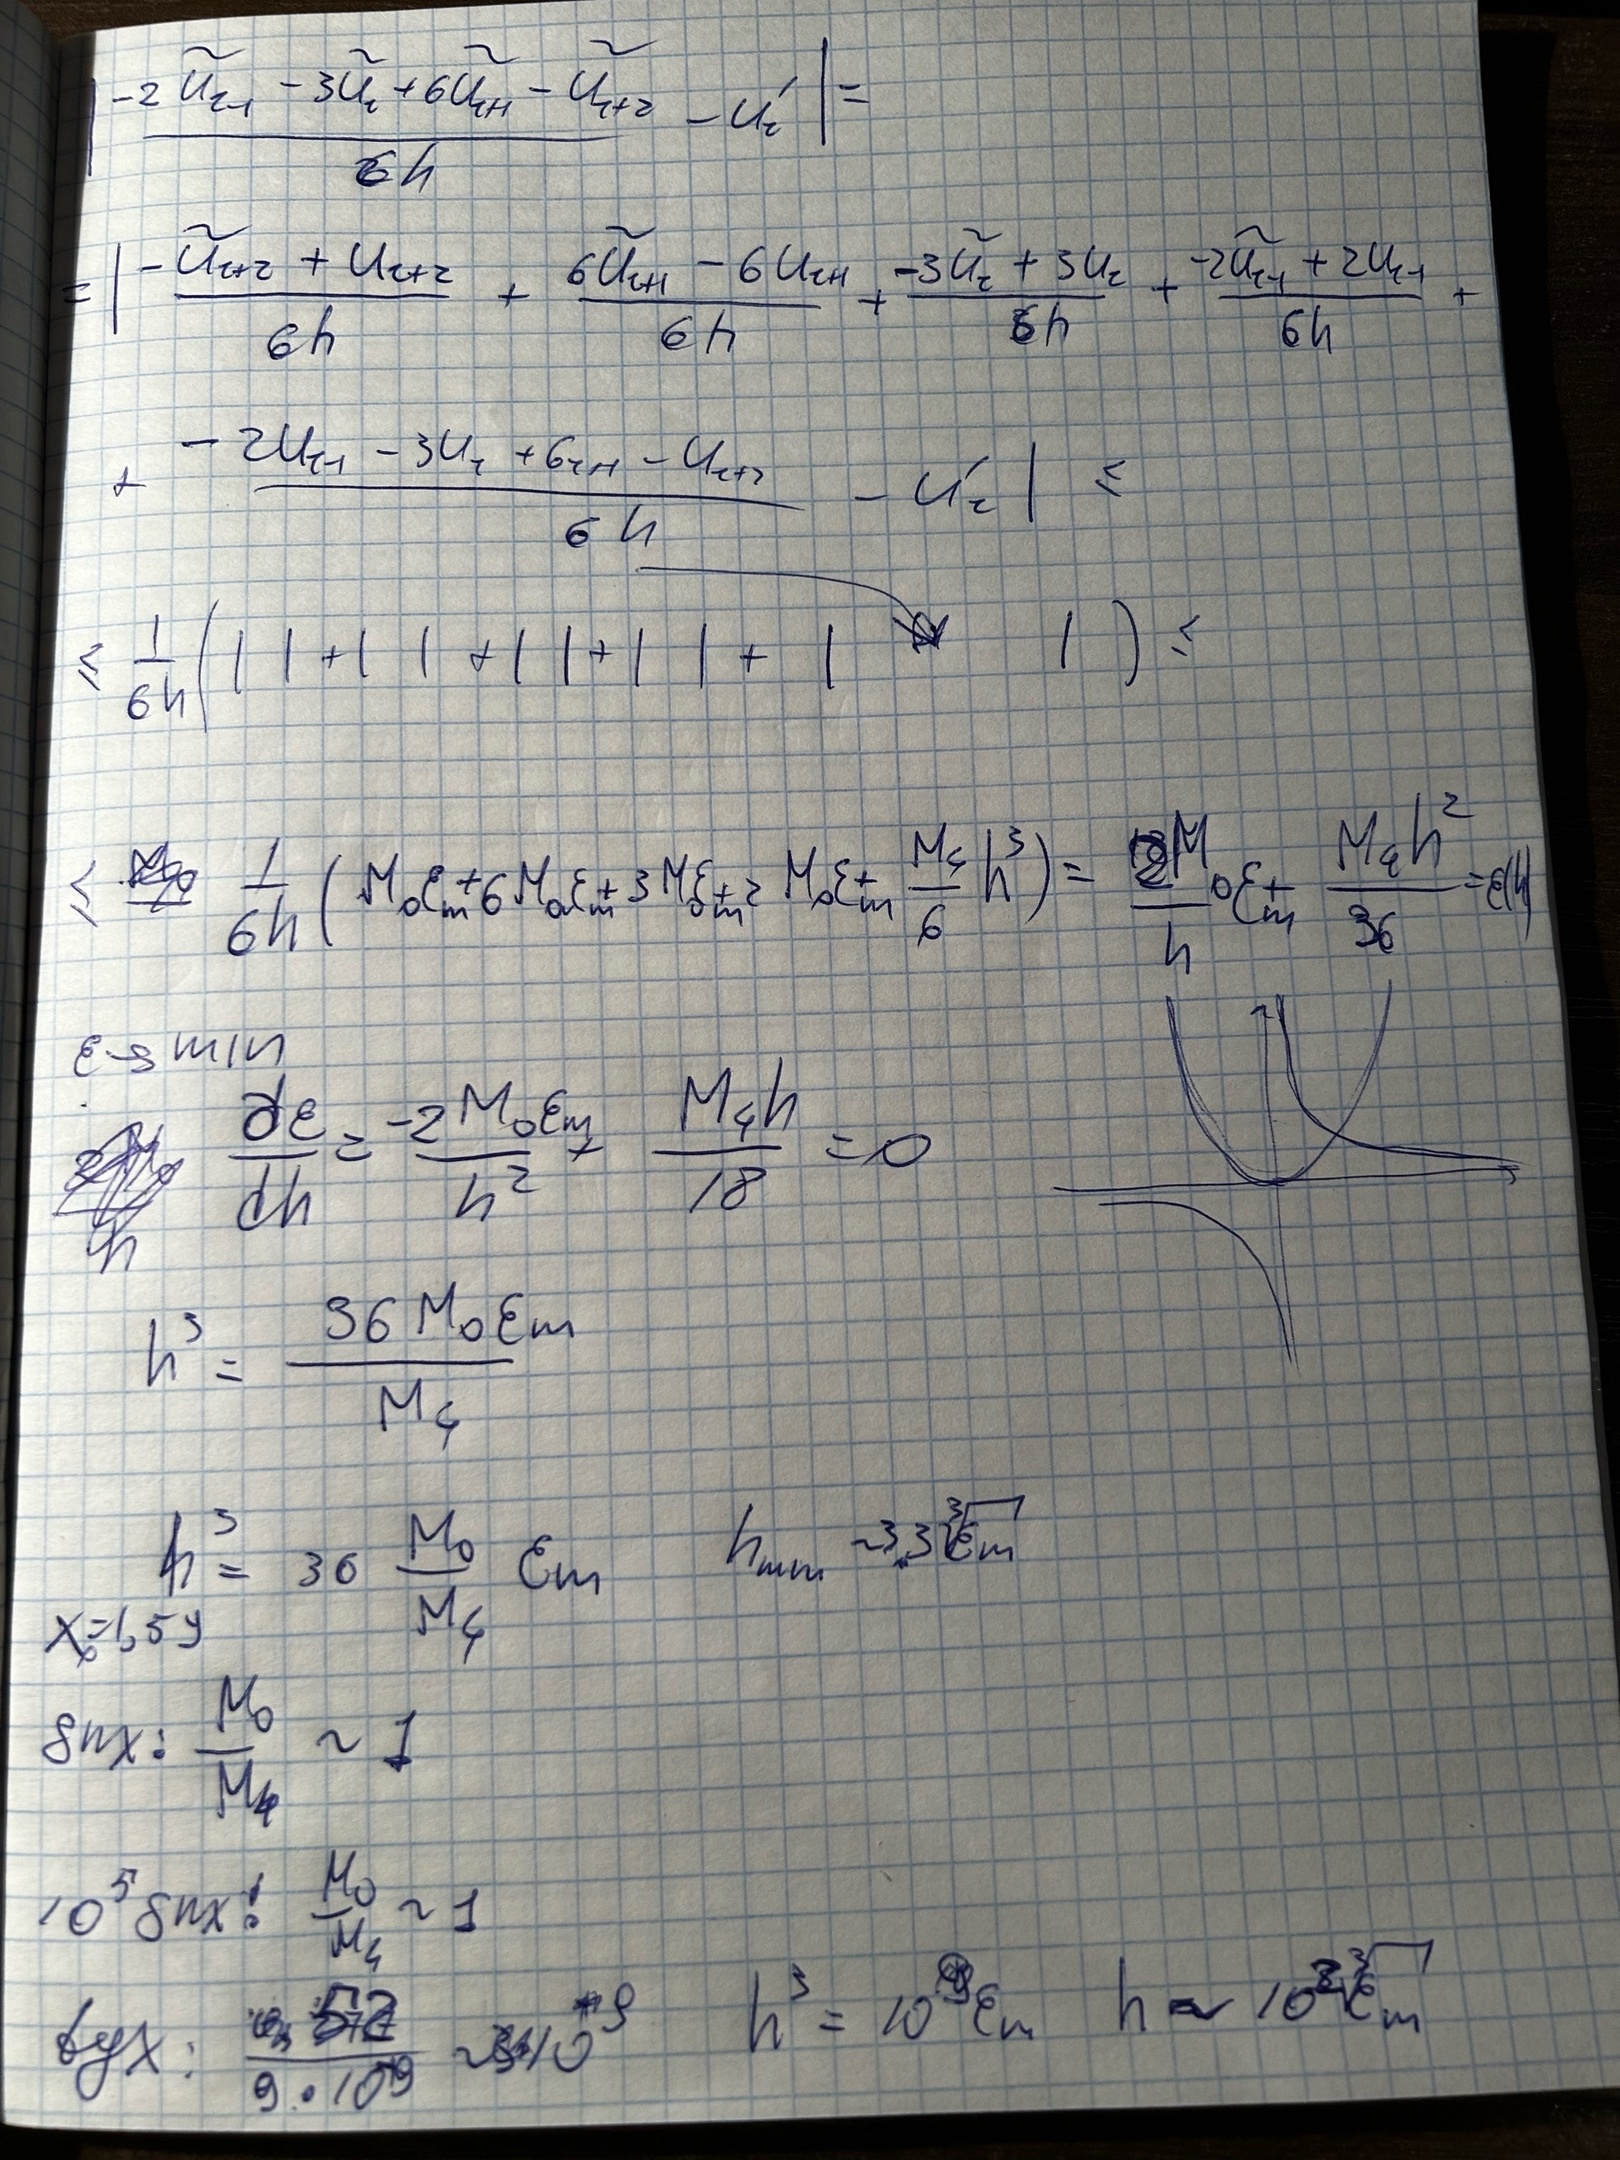 | (-2ũ_{i-1} - 3ũ_i + 6ũ_{i+1} - ũ_{i+2}) / 6h - u'_i | =
= | (-ũ_{i+2} + u_{i+2}) / 6h + (6ũ_{i+1} - 6u_{i+1}) / 6h + (-3ũ_i + 3u_i) / 6h + (-2ũ_{i-1} + 2u_{i-1}) / 6h +
+ (-2u_{i-1} - 3u_i + 6_{i+1} - u_{i+2}) / 6h - u'_i | ≤
≤ 1/6h ( | | + | | + | | + | | + | | ) ≤
≤ 1/6h ( M_0ε_m + 6M_0ε_m + 3M_0ε_m + 2M_0ε_m + M_4/6 h^3 ) = 2M_0/h ε_m + M_4h^2/36 = ε(h)
ε → min
dε/dh = -2M_0ε_m/h^2 + M_4h/18 = 0
h^3 = 36M_0ε_m / M_4
h^3 = 36 M_0/M_4 ε_m h_{min} ~ 3.3 ∛ε_m
x_0=1,59
sin x: M_0/M_4 ~ 1
10^5 sin x: M_0/M_4 ~ 1
tg x: /9·10^9 h^3 = ε_m h ~ ∛ε_m